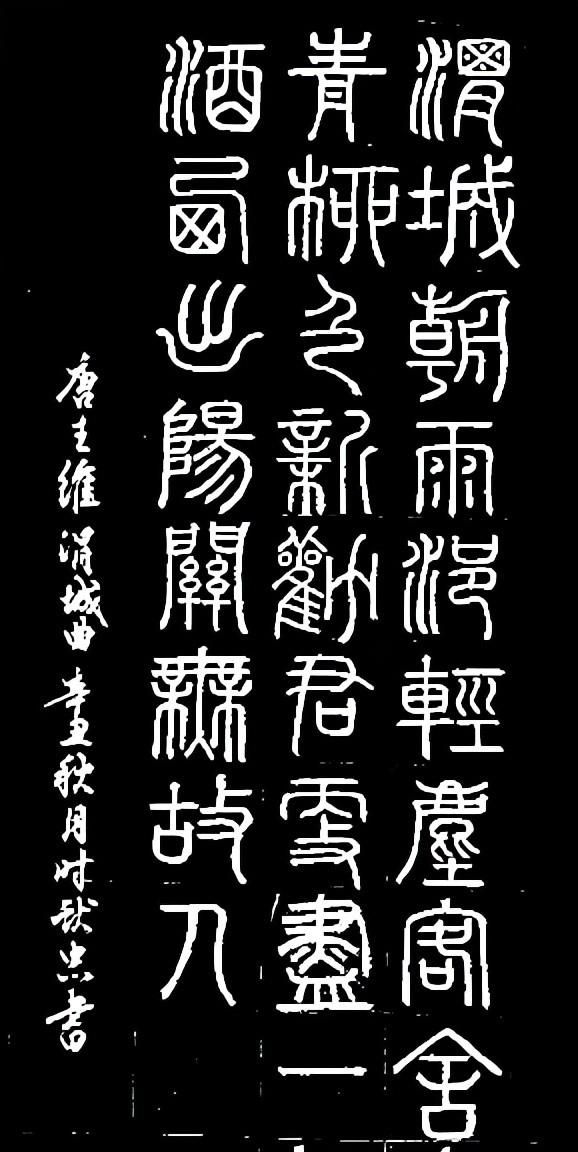 渭城朝雨浥輕塵客舍
青柳色新勸君更盡一
酒西出陽關無故人
唐王維渭城曲辛丑秋月时献忠書